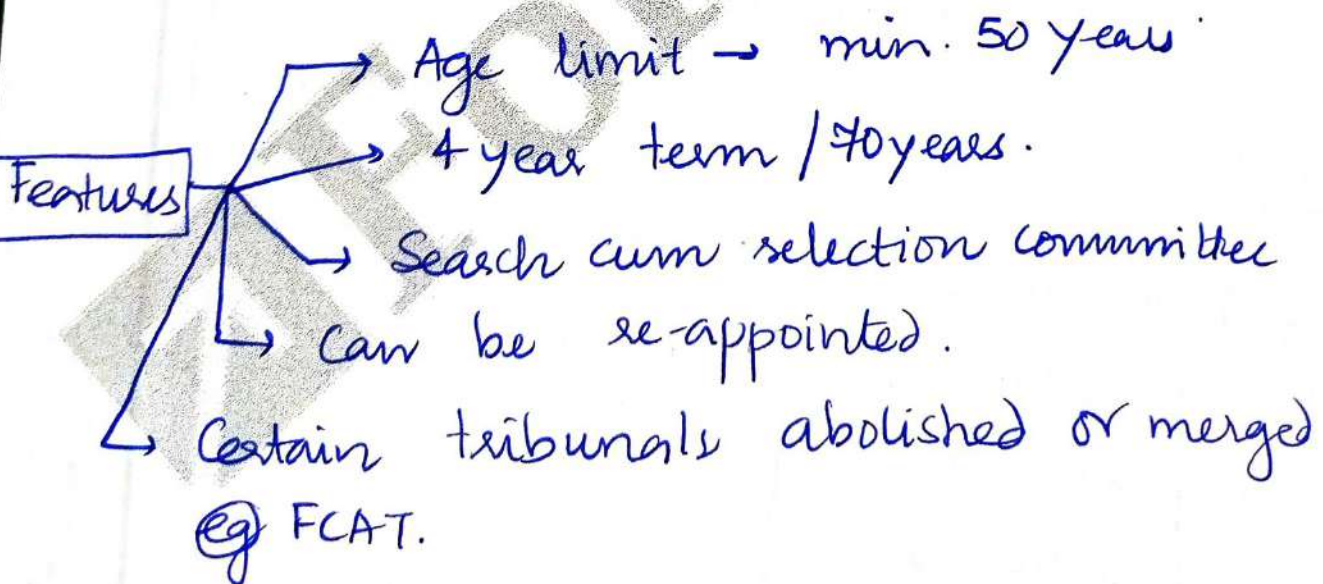 Age limit → min. 50 years
4 year term / 70 years.
Features
Search cum selection committee
Can be re-appointed.
Certain tribunals abolished or merged
eg FCAT.